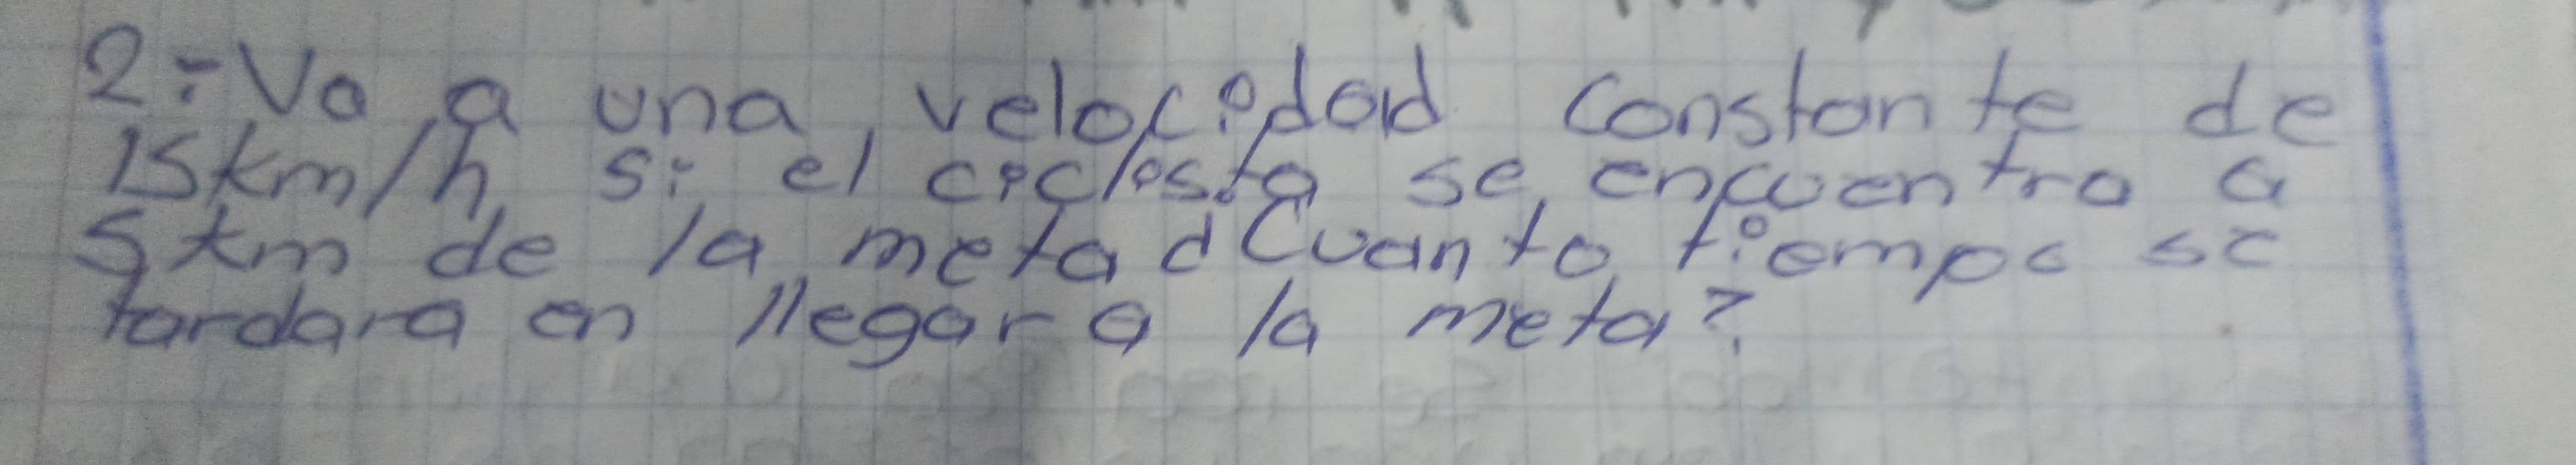 2:-Va a una velocidad constante de
15km/h si el ciclista se encuentra a
5km de la meta ¿Cuanto tiempo se
tardara en llegar a la meta?